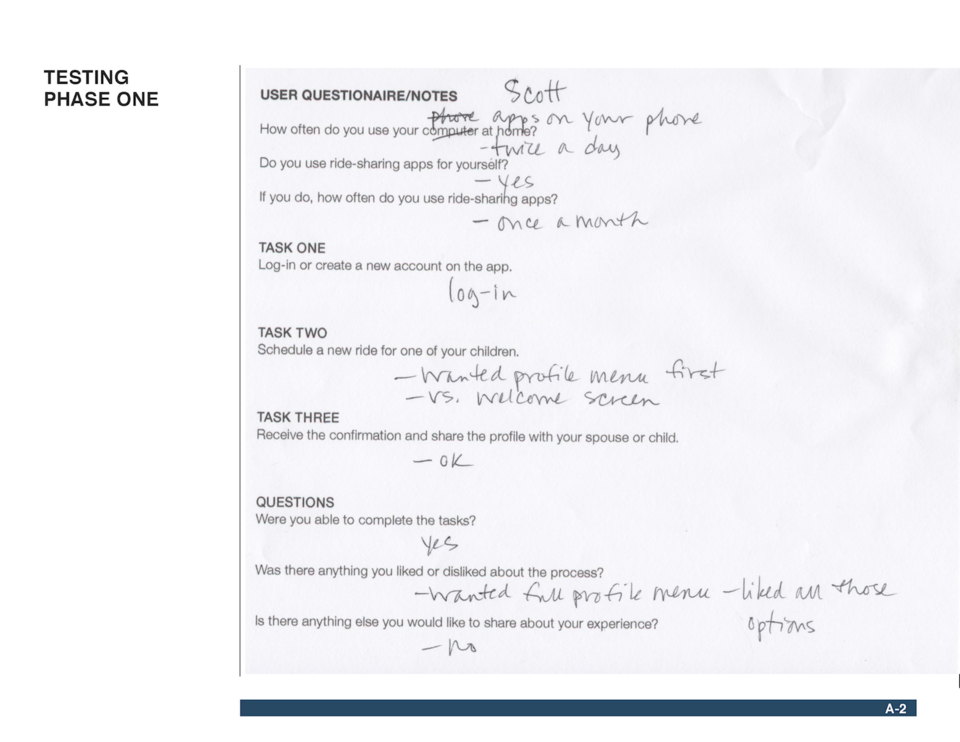 TESTING
PHASE ONE
USER QUESTIONAIRE/NOTES Scott
phone apps on your phone
How often do you use your computer at home?
- twice a day
Do you use ride-sharing apps for yourself?
- yes
If you do, how often do you use ride-sharing apps?
- once a month
TASK ONE
Log-in or create a new account on the app.
log-in
TASK TWO
Schedule a new ride for one of your children.
- wanted profile menu first
- vs. welcome screen
TASK THREE
Receive the confirmation and share the profile with your spouse or child.
- OK
QUESTIONS
Were you able to complete the tasks?
yes
Was there anything you liked or disliked about the process?
- wanted full profile menu - liked all those
options
Is there anything else you would like to share about your experience?
- no
A-2